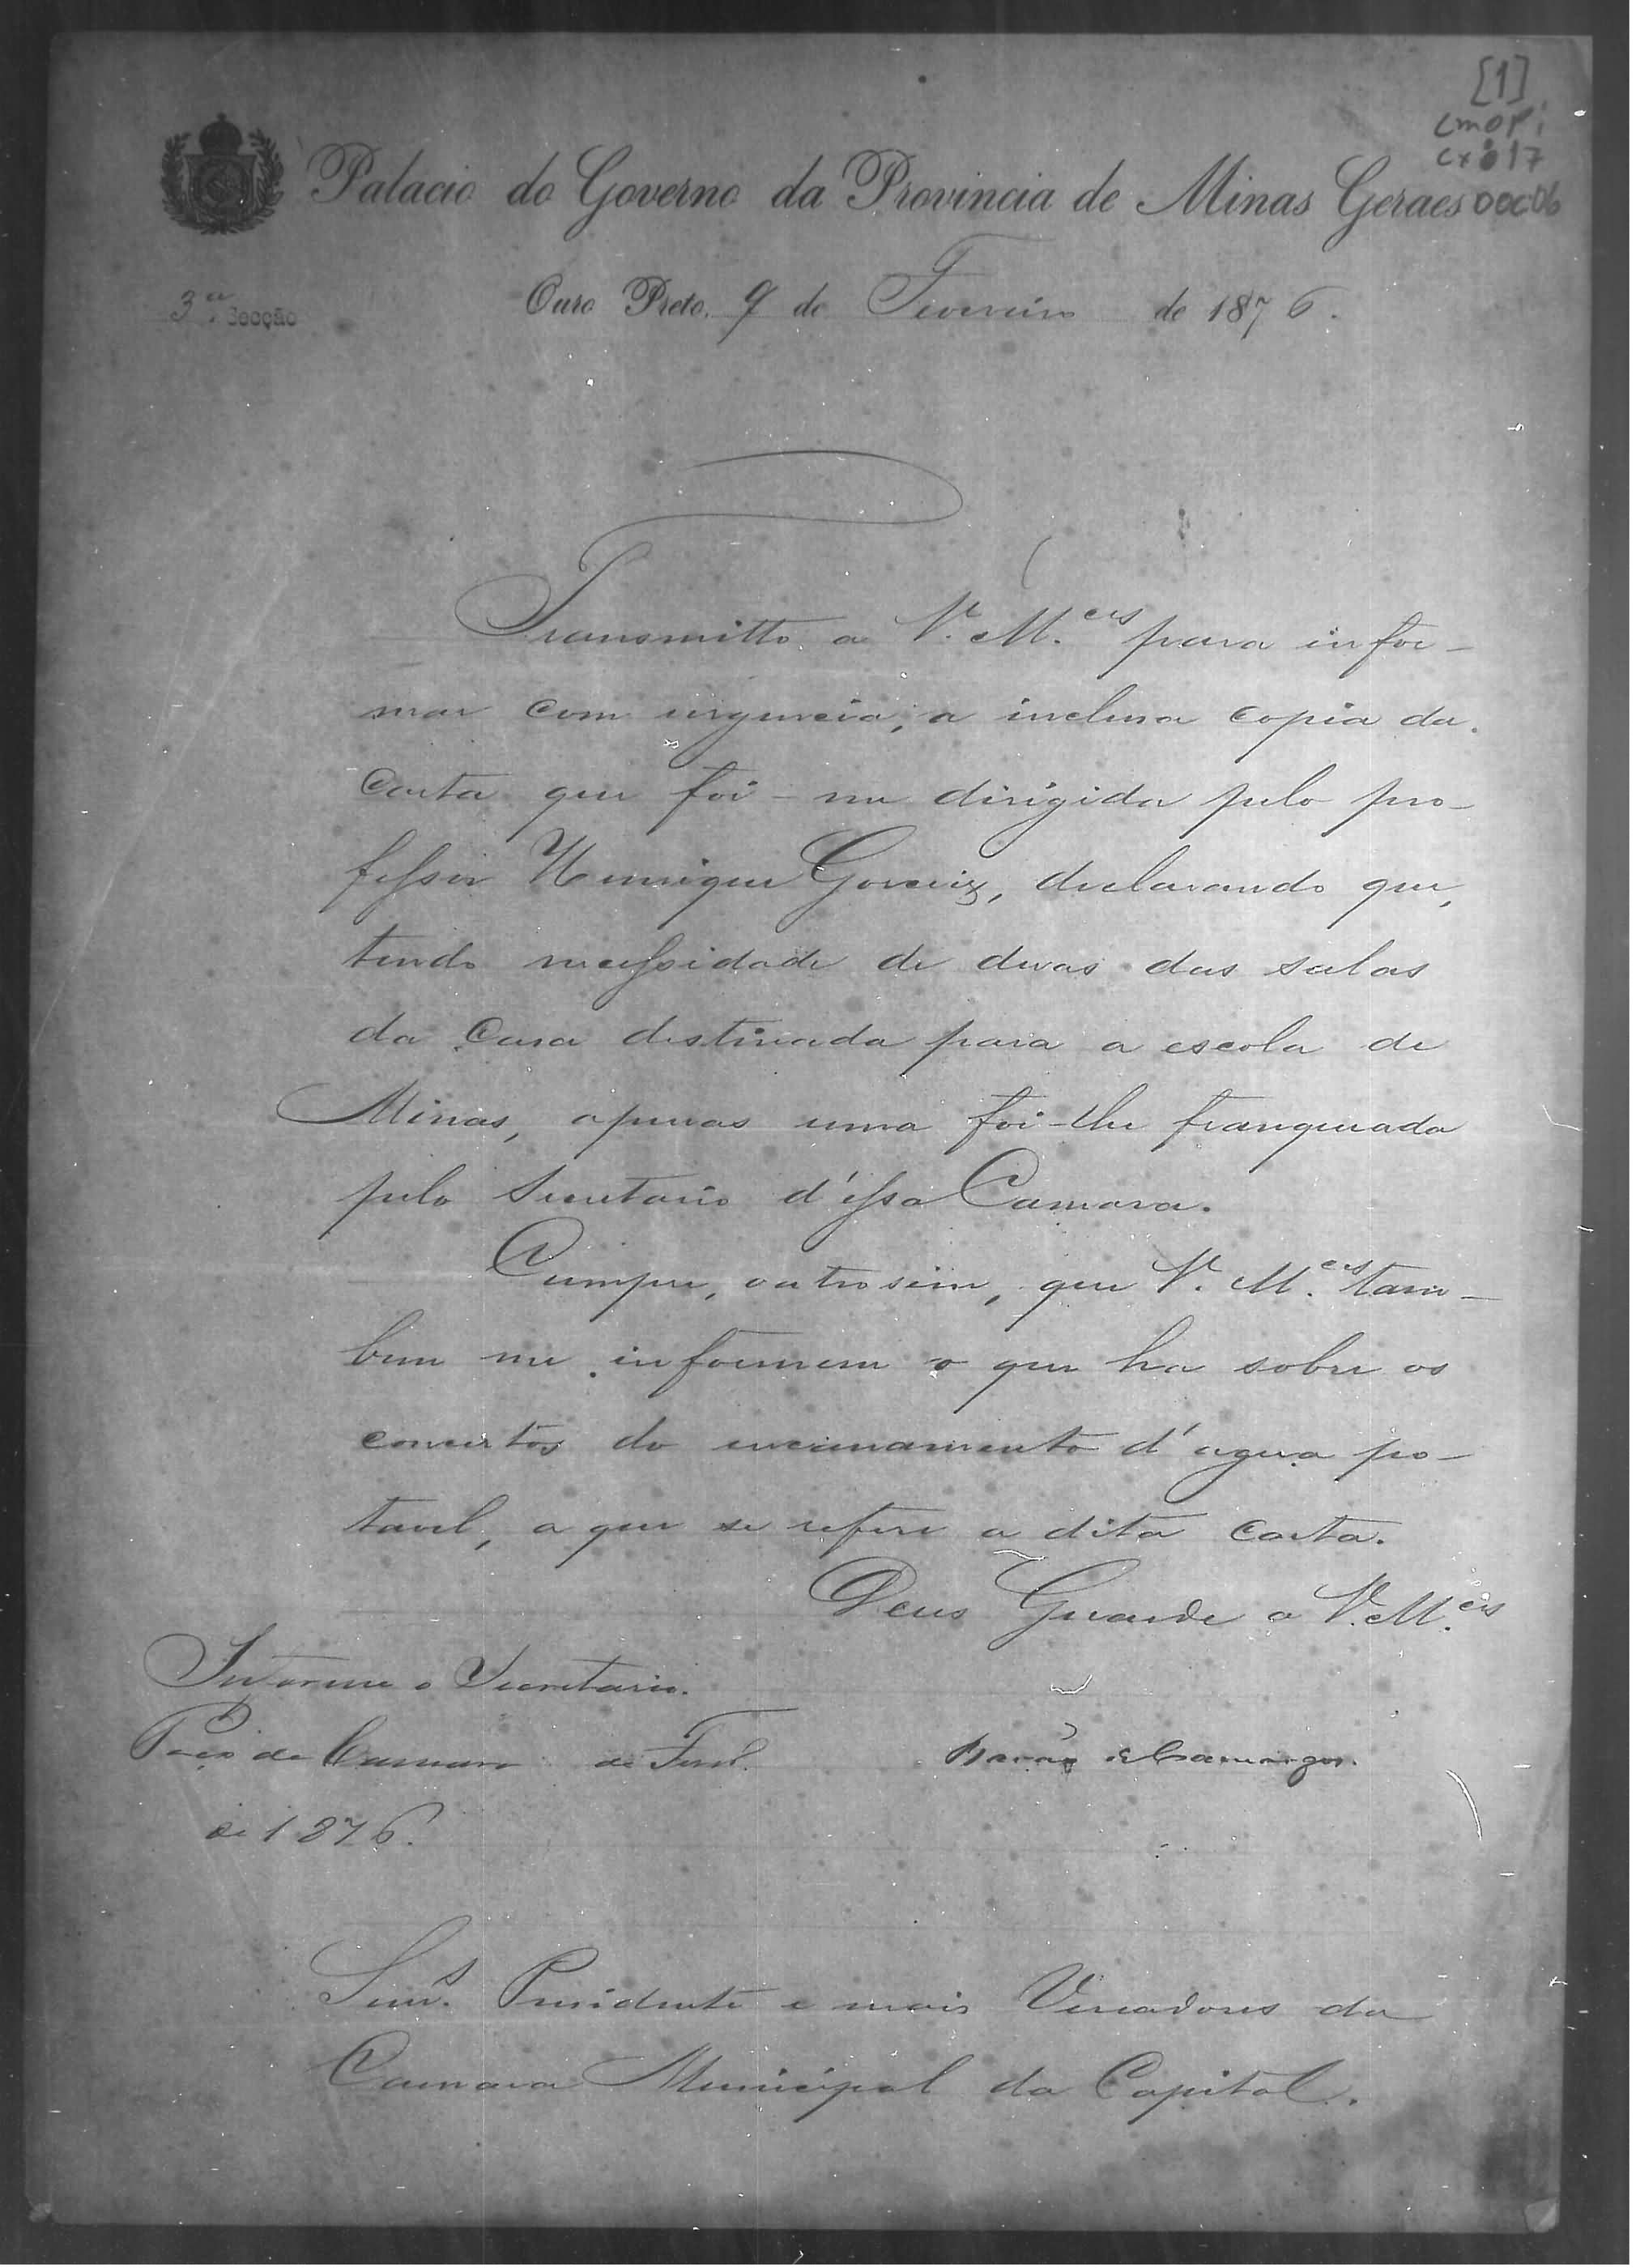 [1]
CMOPi
cx 017
00006
Palacio do Governo da Provincia de Minas Geraes
3ª Secção
Ouro Preto, 9 de Fevereiro de 1876.
Transmitto a V. M.ces para infor-
mar com urgencia, a inclusa copia da
carta que foi-me dirigida pelo pro-
fessor Henrique Gorceix, declarando que,
tendo necessidade de duas das salas
da Casa destinada para a escola de
Minas, apenas uma foi-lhe franqueada
pelo Secretario d'essa Camara.
Cumpre, outrosim, que V. M.ces tam-
bem me informem o que ha sobre os
concertos do encanamento d'agua po-
tavel, a que se refere a dita carta.
Deus Guarde a V. M.ces
Informe o Secretario.
Paço da Camara de Fevº.
de 1876.
Barão de Camargos.
Senr.s Presidente e mais Vereadores da
Camara Municipal da Capital.